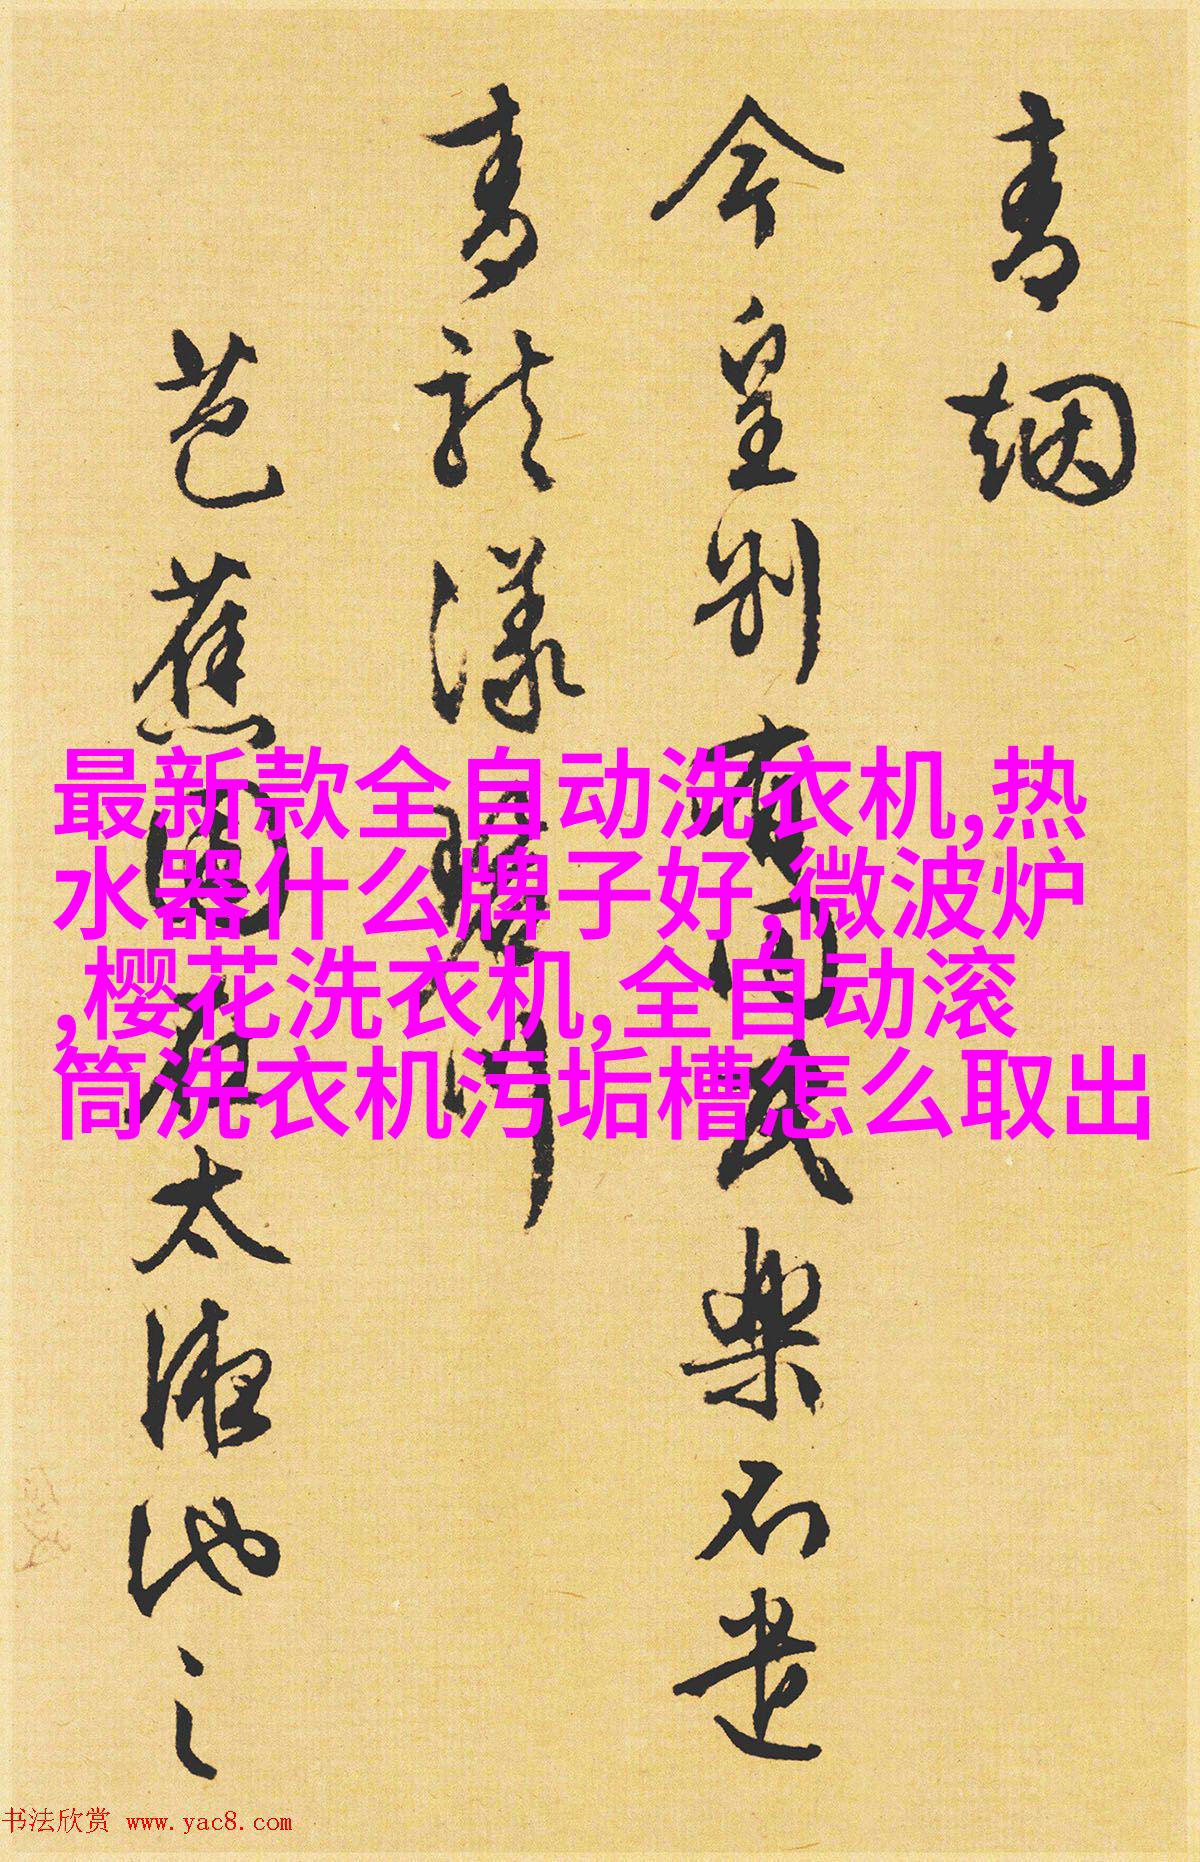 青烟
今皇别有同民樂不遣
青龍漾碧川
芭蕉園在太液池之
最新款全自动洗衣机,热
水器什么牌子好,微波炉
,樱花洗衣机,全自动滚
筒洗衣机污垢槽怎么取出
书法欣赏 www.yac8.com